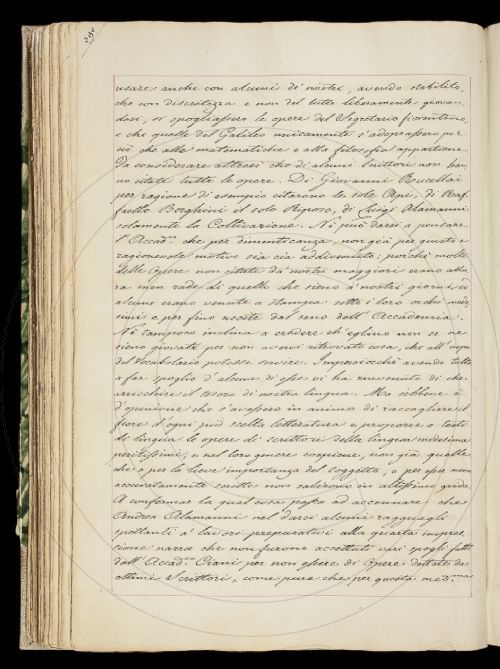 usare anche con alcuni de' nostri, avendo stabilito,
che con discretezza e non del tutto liberamente giovan-
dosi, si spogliassero le opere del Segretario fiorentino,
e che quelle del Galileo unicamente s'adoperassero per
ciò che alle matematiche e alla filosofia appartiene.
Da considerare altresì che di alcuni scrittori non han-
no citate tutte le opere. Di Giovanni Rucellai
per ragione di esempio citarono le sole Api, di Raf-
faello Borghini il solo Riposo, di Luigi Alamanni
solamente la Coltivazione. Nè può darsi a pensare
l'Accad. che per dimenticanza, non già per giusto e
ragionevole motivo sia ciò addivenuto: poichè molte
delle opere non citate da' nostri maggiori erano allo-
ra men rade di quelle che sieno a' nostri giorni, ed
alcune erano venute a stampa sotto i loro occhi mede-
simi e per fino uscite dal seno dell'Accademia.
Nè tampoco inclina a credere ch'eglino non se ne
sieno giovati per non avervi ritrovato cosa, che all'uopo
del Vocabolario potesse servire. Imperciocchè avendo tolto
a far spoglio d'alcune di esse vi ha rinvenuto di che
arricchire il tesoro di nostra lingua. Ma sibbene è
d'opinione che s'avessero in animo di raccogliere il
fiore d'ogni più scelta letteratura e proporre a testo
di lingua le opere di scrittori della lingua medesima
peritissimi, e nel loro genere cospicue, non già quelle
che o per la lieve importanza del soggetto, o per esser meno
accuratamente scritte non salirono in altissimo grido.
A confermar la qual cosa passa ad accennare, che
Andrea Alamanni nel darci alcuni ragguagli
spettanti a' lavori preparativi alla quarta impres-
sione narra che non furono accettati vari spogli fatti
dall'Accad. Ciani per non essere di Opere dettate da
ottimi Scrittori, come pure che per questa med.ma